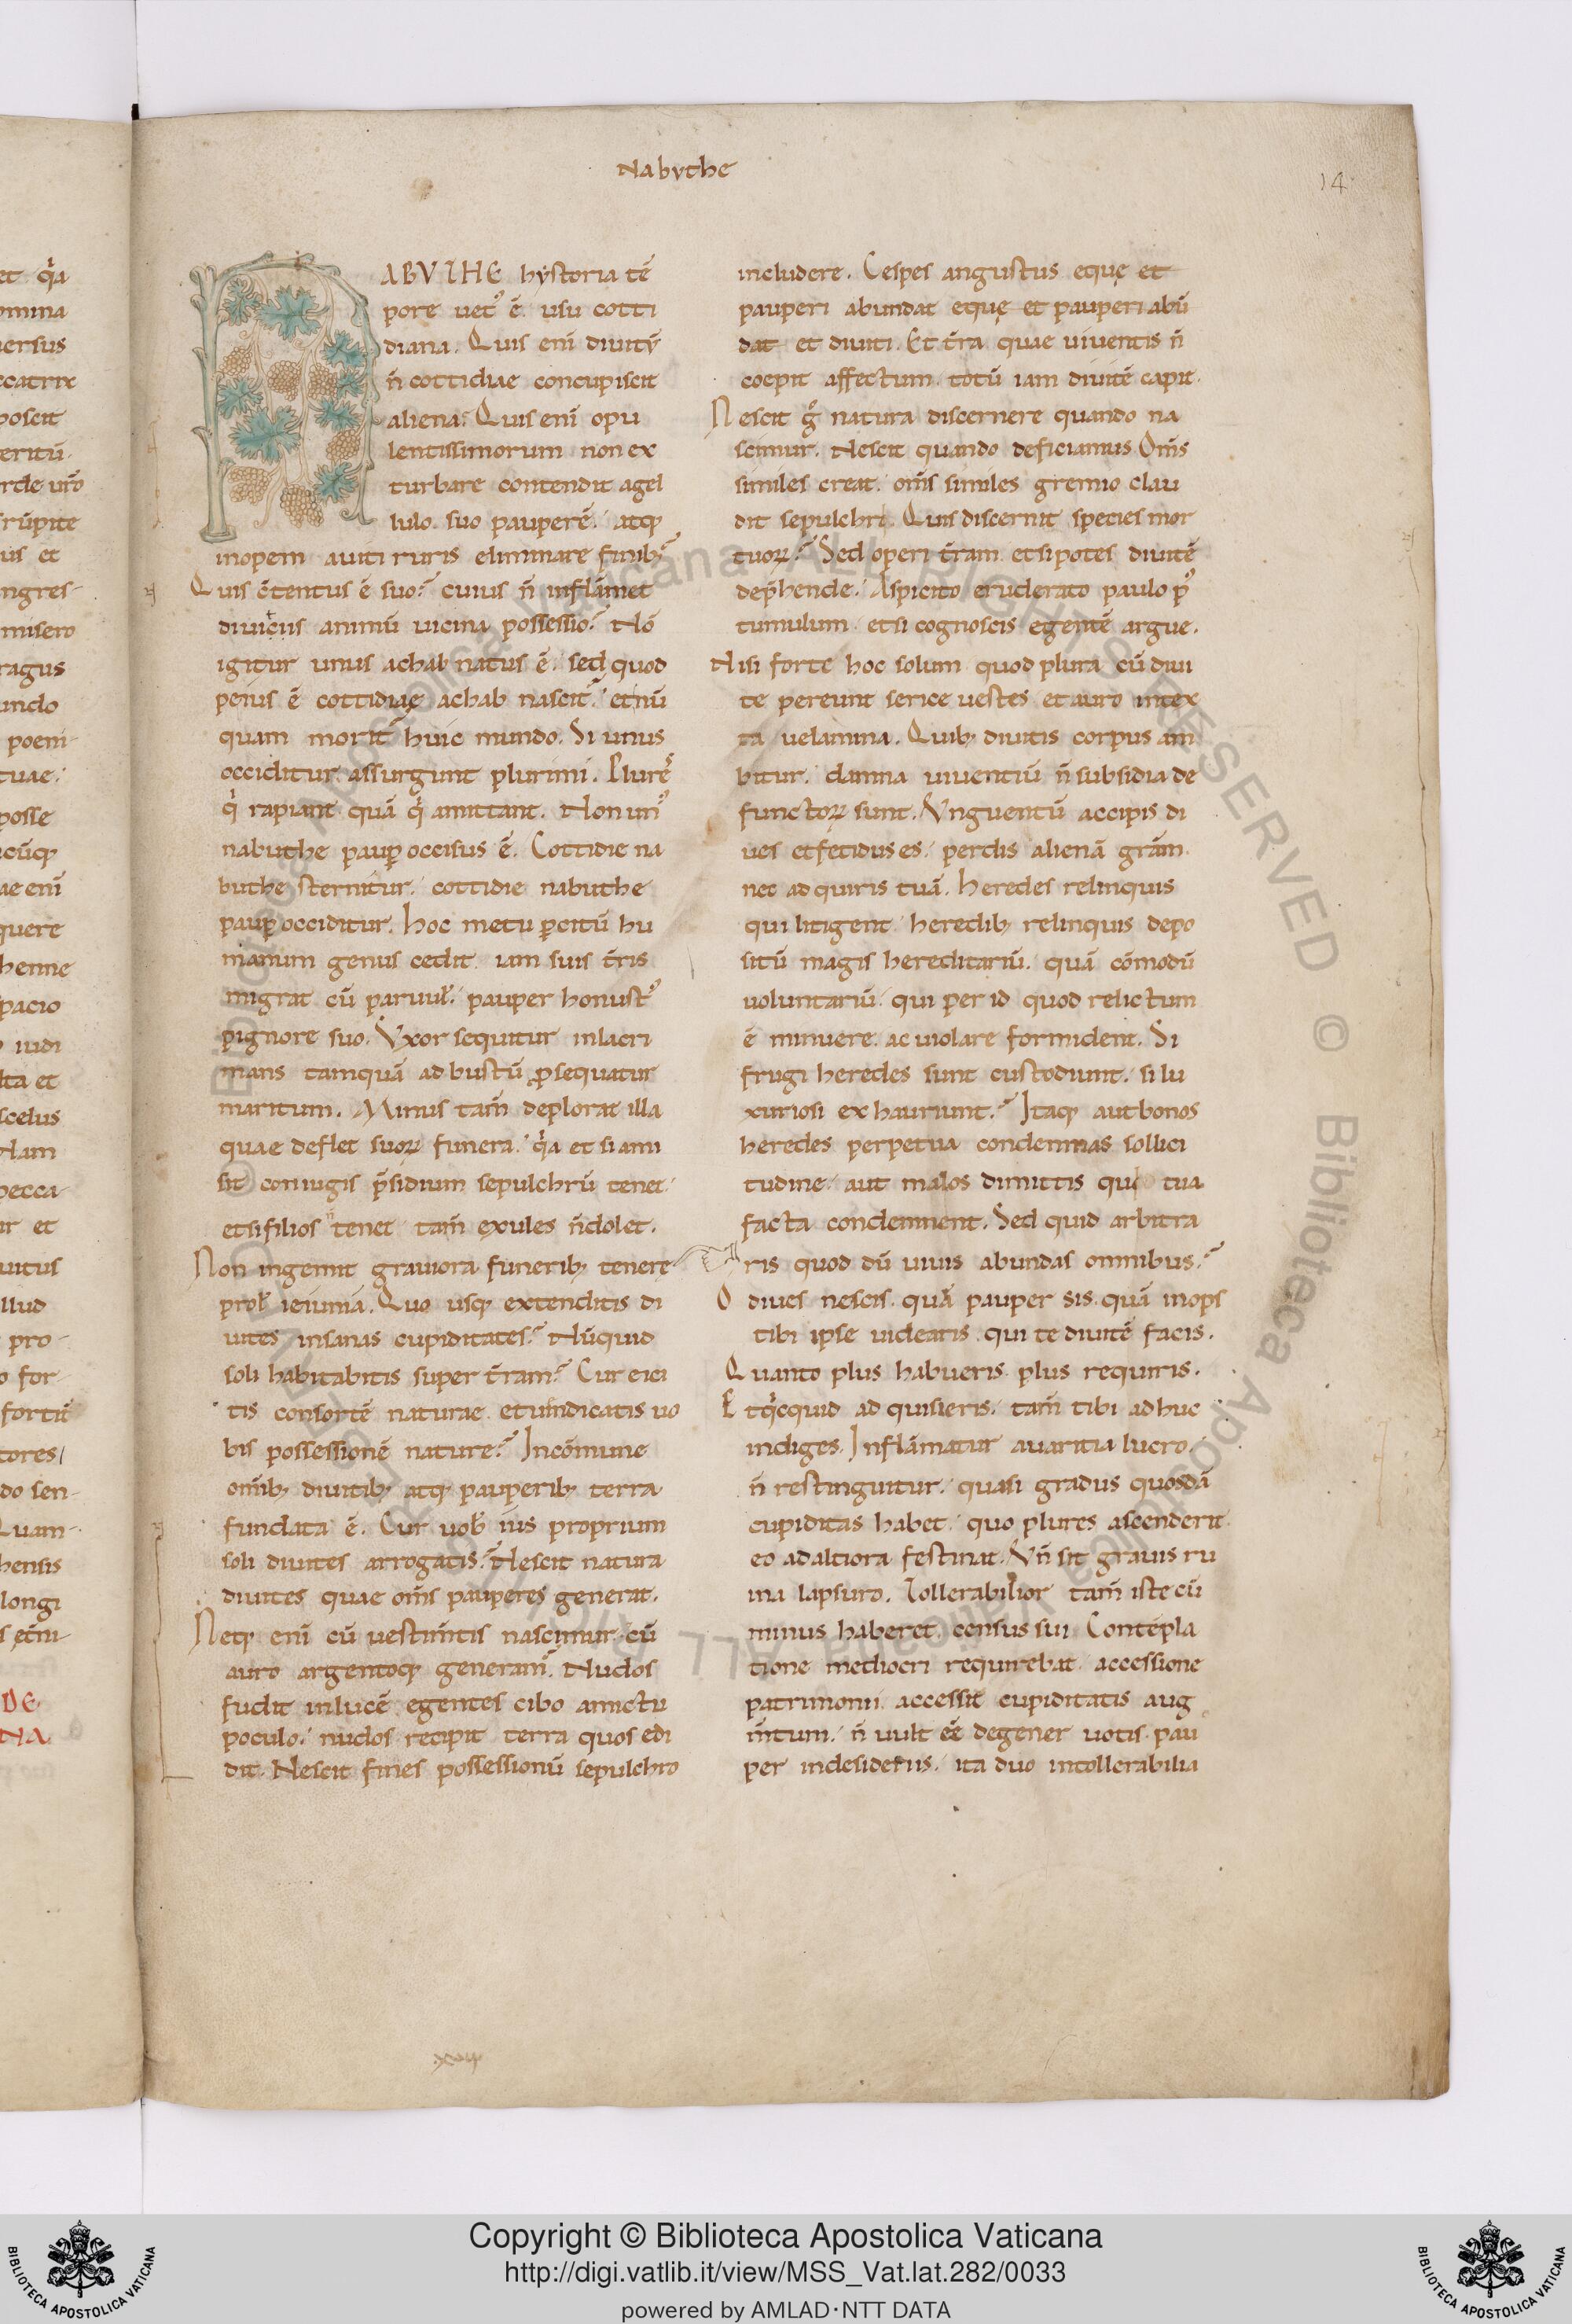 Nabvthe
14
et q̊a
omina
versus
ccatrix
poscit
eritū.
rde ur̄o
rūpite
us et
ngres-
misero
ragus
undo
poeni-
tuae.
posse
cūq;
ae enī
quere
henne
pacio
iudi
lta et
scelus
Nam
pecca-
ur et
uitus
llud
pro-
o for-
fortū
tores/
do sen-
Quam-
hensis
longi
DE
NA.
NABVTHE hystoria tē
pore uet᾿ ē. usu cotti
diana. Quis enī diuitū
n̄ cottidiae concupiscit
aliena? Quis enī opu
lentissimorum non ex
turbare contendit agel
lulo suo pauperē. atq;
inopem auiti ruris eliminare finib;?
Quis c̄tentus ē suo? cuius n̄ inflāmet
diuitiis animū uicina possessio? Nō
igitur unus achab natus ē. sed quod
peius ē cottidiae achab nascit᷑. et nū
quam morit᷑ huic mundo. Si unus
occiditur assurgunt plurimi. Plures
q̇ rapiant quā q̇ amittant. Non un᾿
nabuthe paup̄ occisus ē. Cottidie na
buthe sternitur. cottidie nabuthe
paup̄ occiditur. Hoc metu p̄citū hu
manum genus cedit iam suis t̄ris
migrat cū paruul̄. pauper honust᾿
pignore suo. Vxor sequitur inlacri
mans tamquā ad bustū p̄sequatur
maritum. Minus tam̄ deplorat illa
quae deflet suoꝝ funera. q̊a et si ami
sit coniugis p̄sidium sepulchrū tenet.
et si filios n̄ tenet tam̄ exules n̄ dolet.
Non ingemit grauiora funerib; tenere
prol̄ ieiunia. Quo usq; extenditis di
uites insanas cupiditates? Nūquid
soli habitabitis super t̄ram? Cur eici
tis consortē naturae et uindicatis uo
bis possessionē nature? In cōmune
om̄ib; diuitib; atq; pauperib; terra
fundata ē. Cur uob̄ ius proprium
soli diuites arrogatis? Nescit natura
diuites quae om̄s pauperes generat.
Neq; enī cū uestim̄tis nascimur cū
auro argentoq; generam᾿. Nudos
fudit in lucē egentes cibo amictu
poculo. nudos recipit terra quos edi
dit. Nescit fines possessionū sepulchro
includere. Cespes angustus eque et
pauperi abundat eque et pauperi abū
dat et diuiti. Et t̄ra quae uiuentis n̄
coepit affectum. totū iam diuitē capit.
Nescit g̊ natura discernere quando na
scimur. Nescit quando deficiamus Om̄s
similes creat. om̄s similes gremio clau
dit sepulchri. Quis discernit species mor
tuoꝝ? Sed operi t̄ram et si potes diuitē
dep̄hende. Aspicito eruderato paulo p᾿
tumulum et si cognoscis egentē argue.
Nisi forte hoc solum quod plura cū diui
te pereunt serice uestes et auro intex
ta uelamina. Quib; diuitis corpus am
bitur. damna uiuentiū n̄ subsidia de
functoꝝ sunt. Vnguentū accipis di
ues et fetidus es. perdis alienā grām.
nec adquiris tuā. Heredes relinquis
qui litigent. heredib; relinquis depo
sitū magis hereditariū. quā cōmodū
uoluntariū. qui per id quod relictum
ē minuere ac uiolare formident. Si
frugi heredes sunt custodiunt. si lu
xuriosi exhauriunt. Itaq; aut bonos
heredes perpetua condemnas sollici
tudine. aut malos dimittis qui tua
facta condemnent. Sed quid arbitra
ris quod dū uiuis abundas omnibus?
O diues nescis quā pauper sis quā inops
tibi ipse uidearis qui te diuitē facis.
Quanto plus habueris plus requiris.
Et q̇cquid adquisieris. tam̄ tibi adhuc
indiges. Inflāmatur auaritia lucro.
n̄ restinguitur. quasi gradus quosdā
cupiditas habet. quo plures ascenderit
eo ad altiora festinat. Vn̄ sit grauis ru
ina lapsuro. Tollerabilior tam̄ iste cū
minus haberet. census sui Contēpla
tione mediocri requirebat accessione
patrimonii accessit cupiditatis aug
m̄tum. n̄ uult eē degener uotis pau
per in desideriis. ita duo intollerabilia
Copyright © Biblioteca Apostolica Vaticana
http://digi.vatlib.it/view/MSS_Vat.lat.282/0033
powered by AMLAD·NTT DATA
BIBLIOTECA APOSTOLICA VATICANA
BIBLIOTECA APOSTOLICA VATICANA